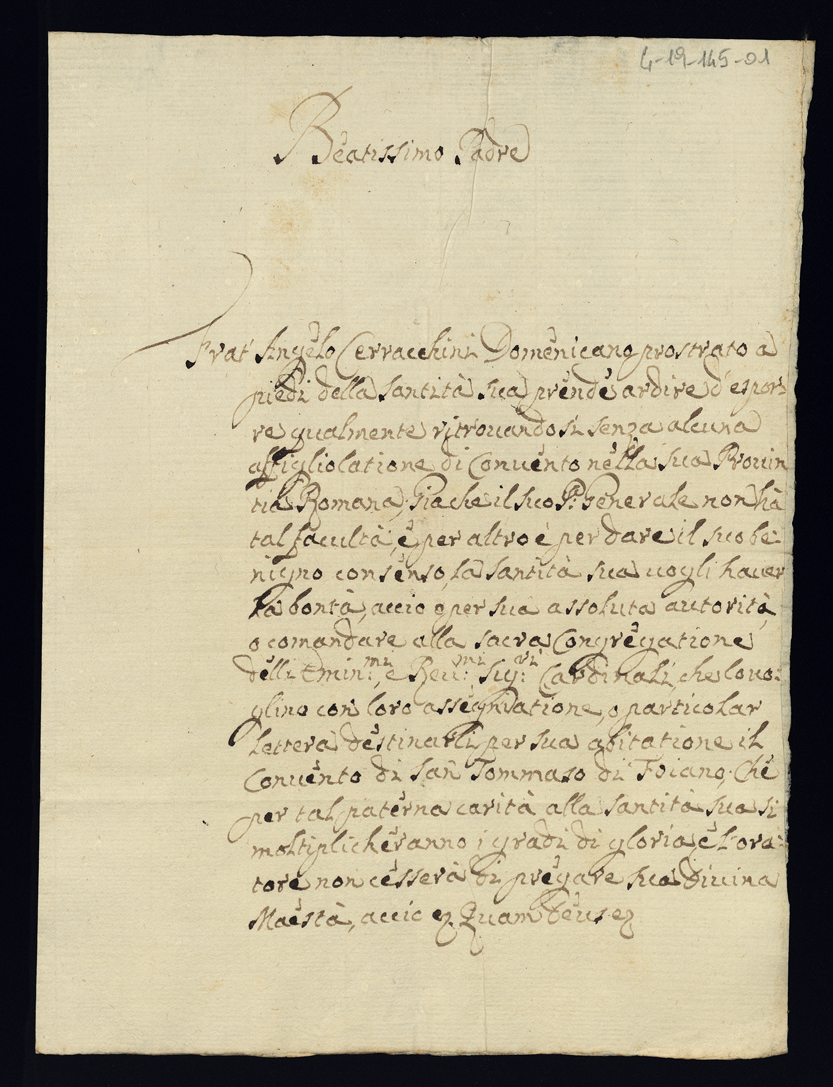 4-19-145-01
Beatissimo Padre
Frat' Angelo Cerracchini Domenicano prostrato a
piedi della Santità sua prende ardire d'espor=
re qualmente ritrouandosi senza alcuna
affigliolatione di Conuento nella sua Prouin
tia Romana, Giache il suo P. Generale non hà
tal facultà, e per altro è per dare il suo be=
nigno consenso, la Santità sua uogli hauer
la bontà, accio o per sua assoluta autorità,
o comandare alla sacra Congregatione
delli Emin.mi, e Reu.mi Sig.ri Cardinali, che louo=
glino con loro assegnatione, o particolar
lettera destinarli per sua abitatione il
Conuento di San Tommaso di Foiano, Che
per tal paterna carità alla Santità sua si
moltiplicheranno i gradi di gloria, e l'ora=
tore non cesserà di pregare sua Diuina
Maestà, accio &c. Quam Deus &c.